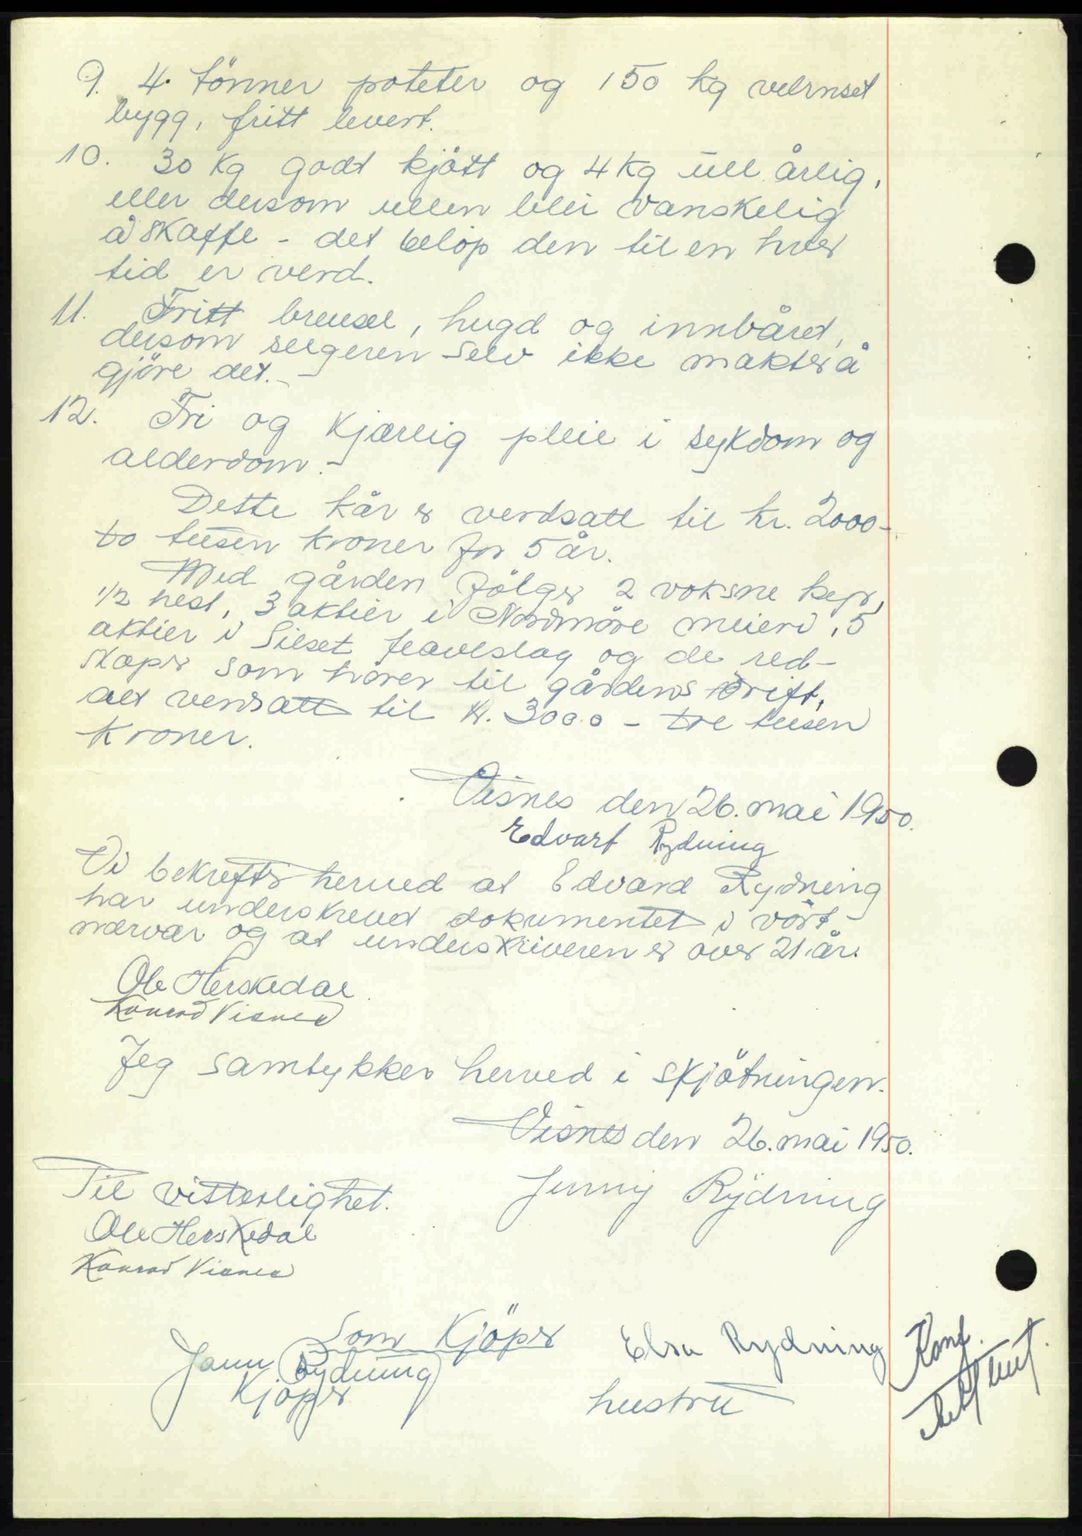 9. 4 tönner poteter og 150 kg velrnset
bygg, fritt levert.
10. 30 kg godt kjött og 4 kg ull årlig,
eller dersom ullen blei vanskelig
å skaffe - det belöp den til en hver
tid er verd.
11. Fritt brensel, hugd og innbåret,
dersom selgeren selv ikke makter å
gjöre det.-
12. Fri og kjærlig pleie i sykdom og
alderdom.-
Dette kår er verdsatt til kr. 2000-
to tusen kroner for 5 år.
Med gården fölger 2 voksne kyr,
1/2 hest, 3 aktier i Nordmöre meieri, 5
aktier i Silset og de red-
skaper som hörer til gårdens drift,
alt verdsatt til kr. 3000 - tre tusen
kroner.
Visnes den 26. mai 1950.
Edvart Rydning
Vi bekrefter herved at Edvard Rydning
har underskrevet dokumentet i vårt
nærvær og at underskriveren er over 21 år.
Ole Herskedal
Konrad Visnes
Jeg samtykker herved i skjötningen.
Visnes den 26. mai 1950.
Jenny Rydning
Til vitterlighet.
Ole Herskedal
Konrad Visnes
Som Kjöper
Rydning
Kjöper
Elsa Rydning
hustru
Konf.